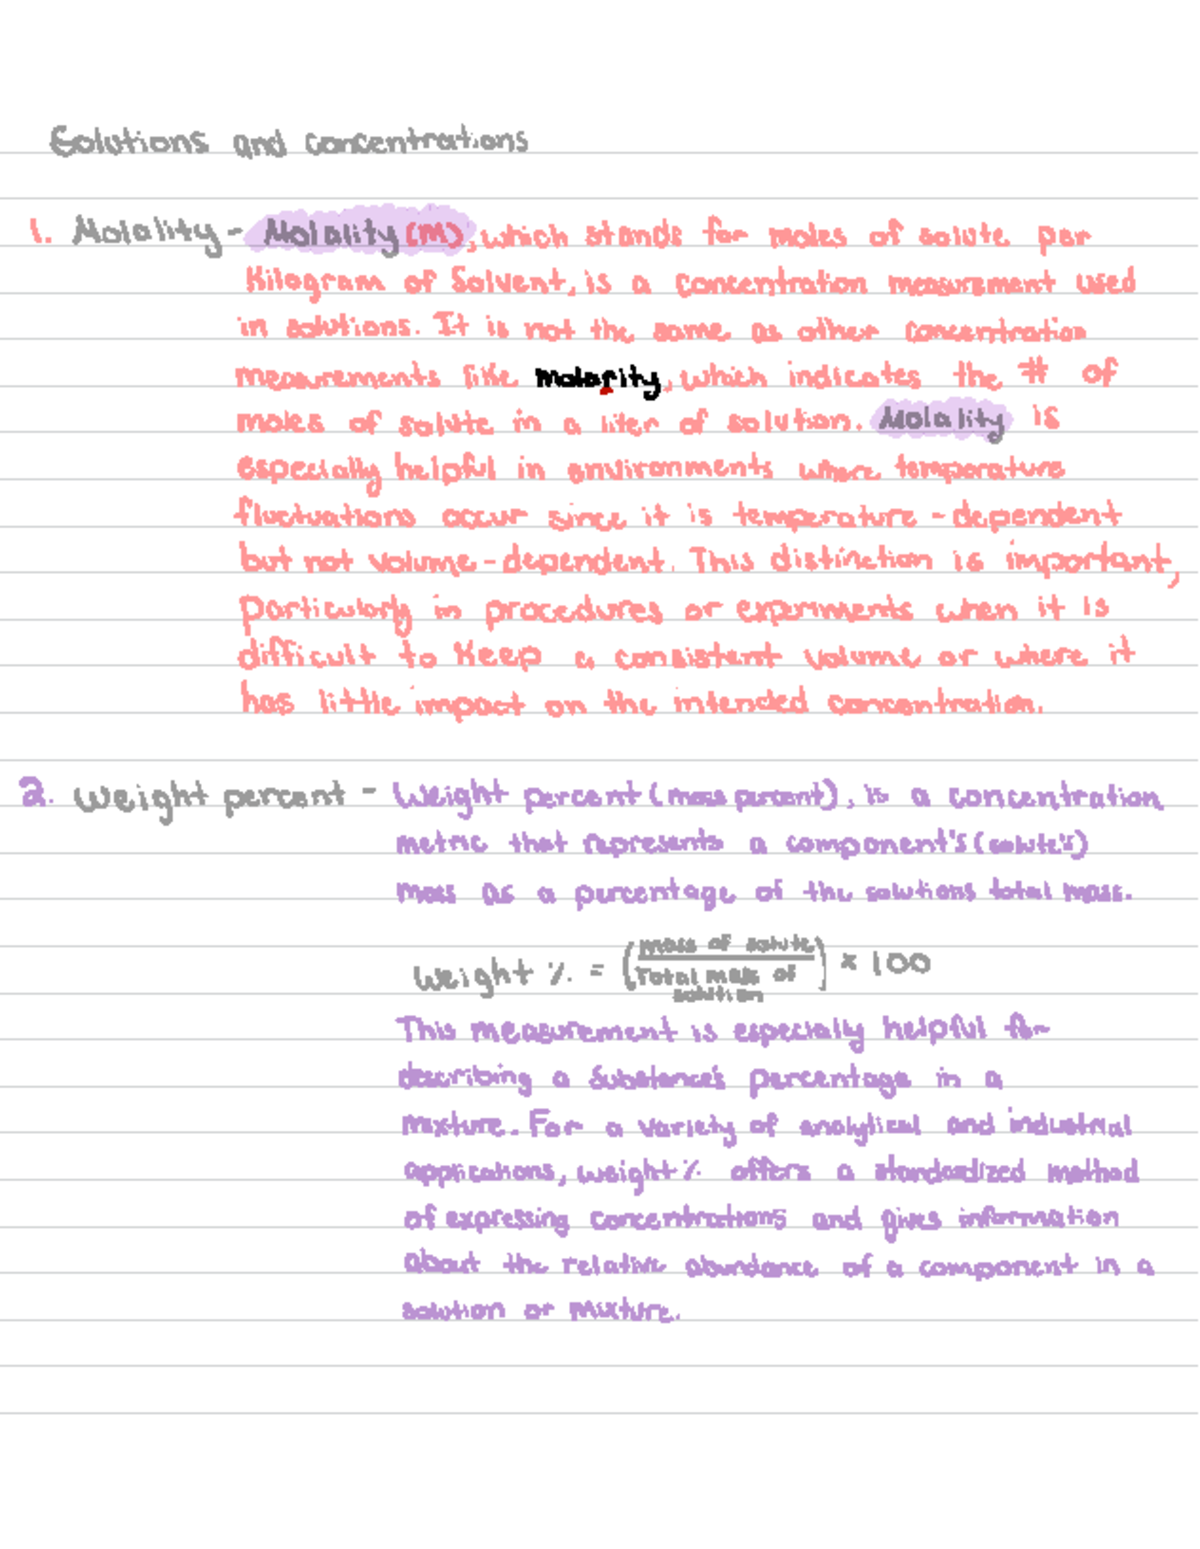 Solutions and concentrations
1. Molality - Molality (M), which stands for moles of solute per
Kilogram of Solvent, is a concentration measurement used
in solutions. It is not the same as other concentration
measurements like molarity, which indicates the # of
moles of solute in a liter of solution. Molality is
especially helpful in environments where temperature
fluctuations occur since it is temperature-dependent
but not volume-dependent. This distinction is important,
particularly in procedures or experiments when it is
difficult to keep a consistent volume or where it
has little impact on the intended concentration.
2. Weight percent - Weight percent (mass percent), is a concentration
metric that represents a component's (solute's)
mass as a percentage of the solutions total mass.
Weight % = (mass of solute / Total mass of solution) × 100
This measurement is especially helpful for
describing a substance's percentage in a
mixture. For a variety of analytical and industrial
applications, weight % offers a standardized method
of expressing concentrations and gives information
about the relative abundance of a component in a
solution or mixture.